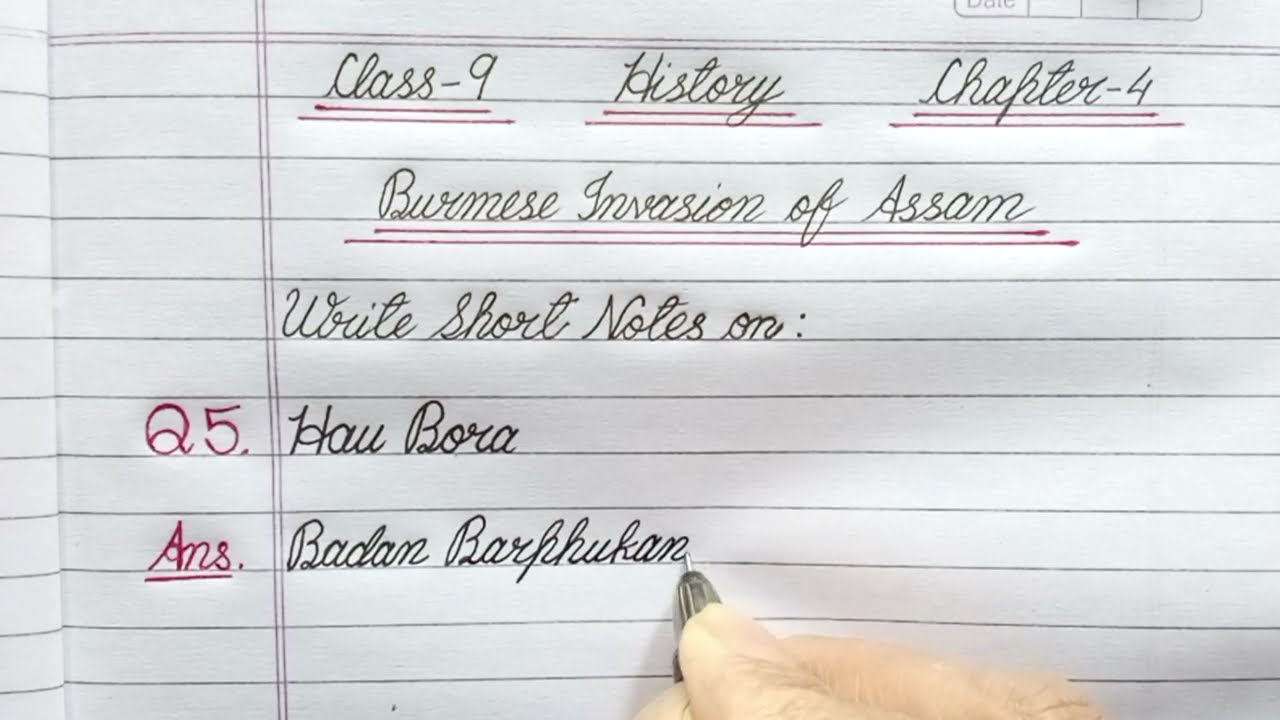 Date
Class-9 History Chapter-4
Burmese Invasion of Assam
Write Short Notes on:
Q5. Hau Bora
Ans. Badan Barphukan